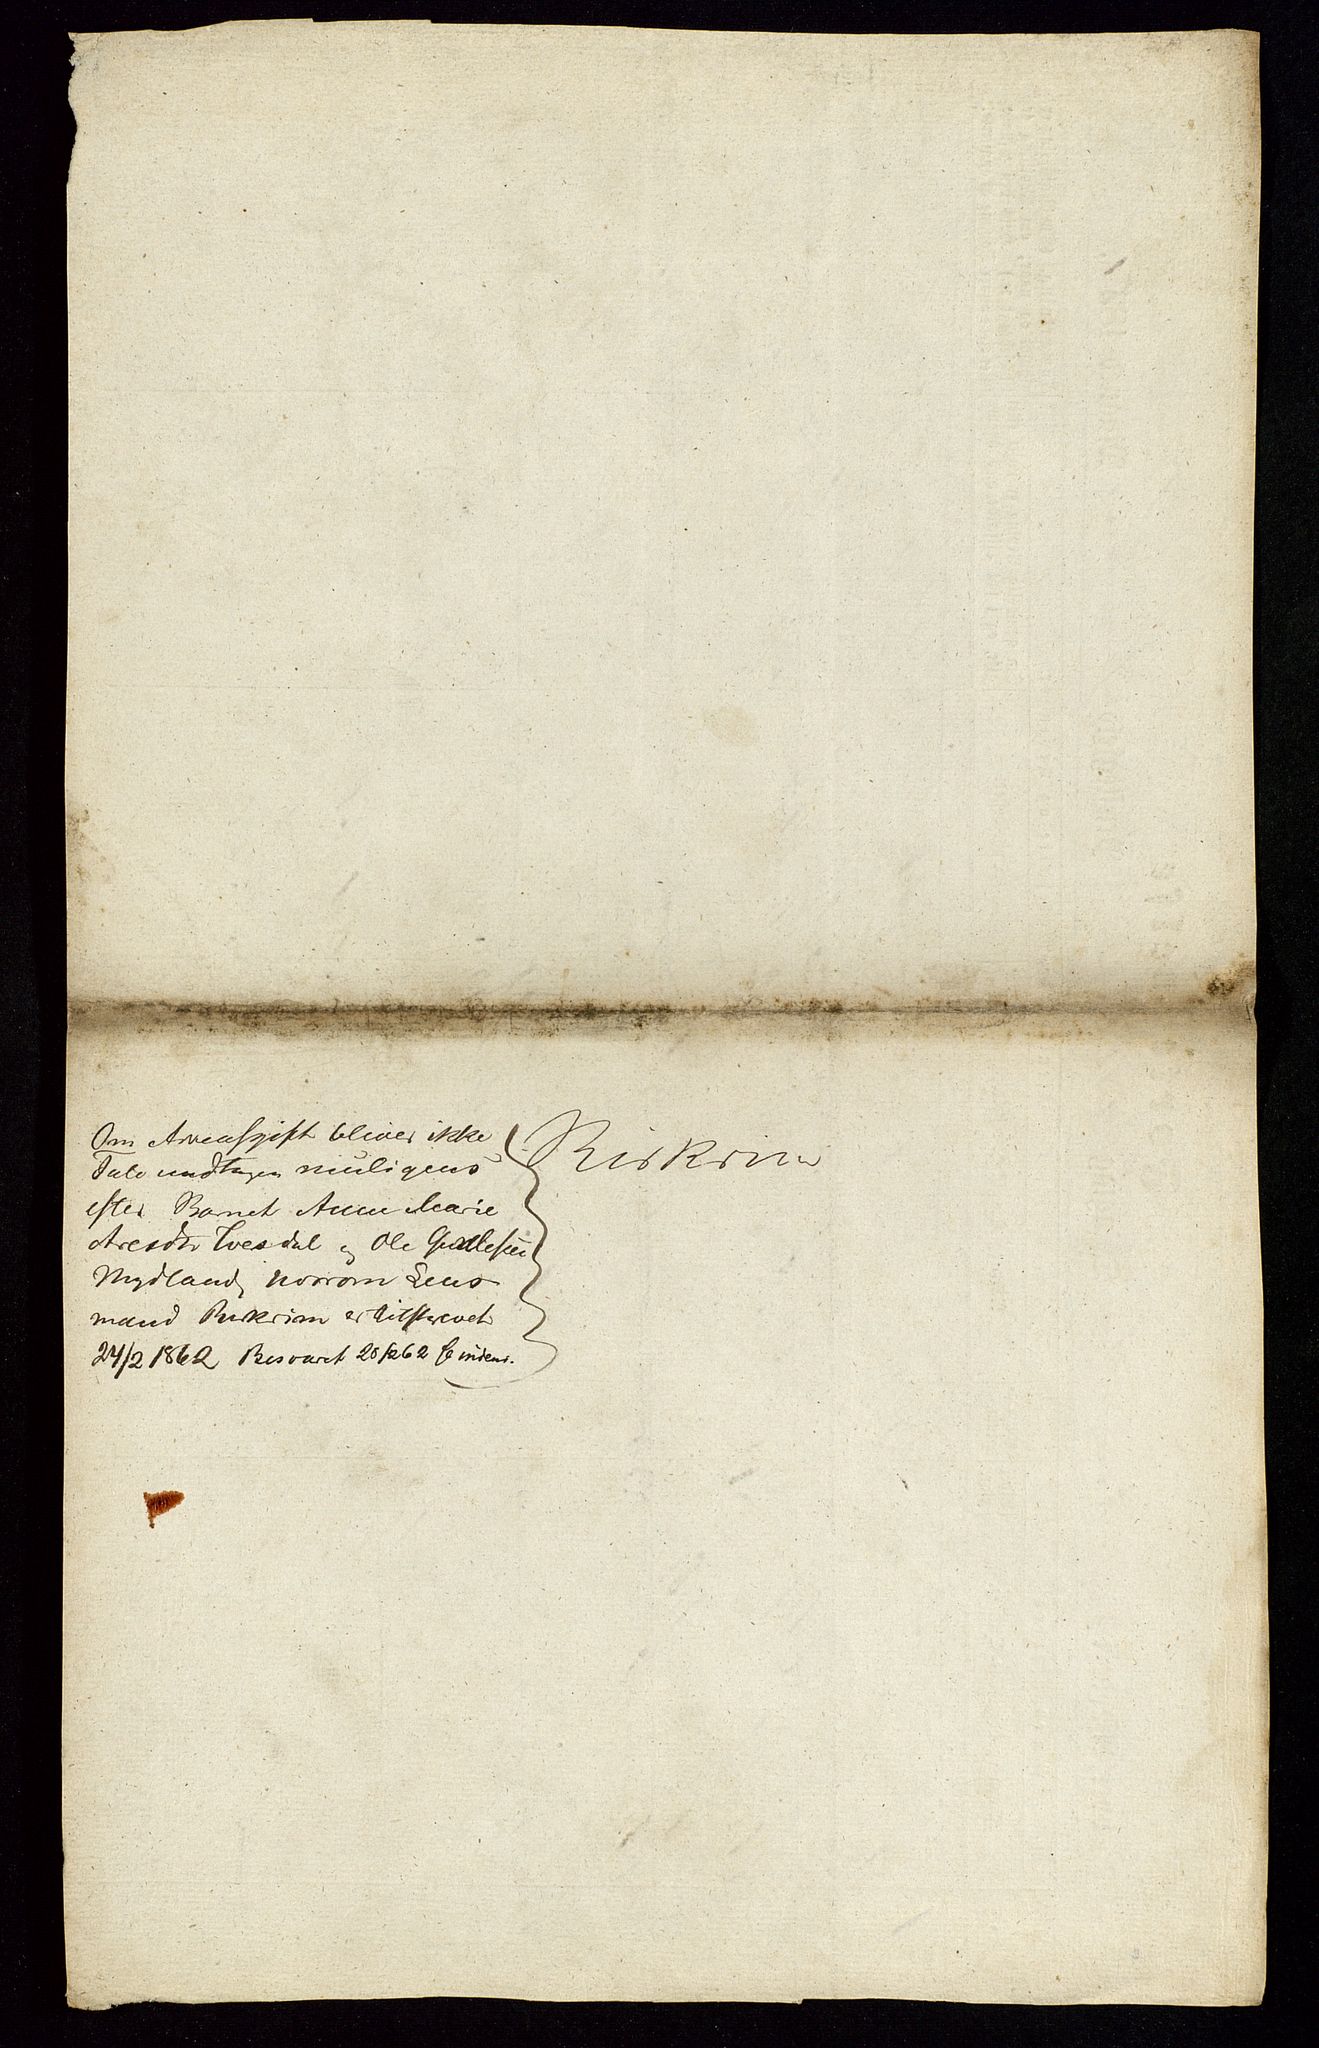 Om Arveafgift bliver ikke
Tale undtagen muligens
efter Barnet Anne Marie
Aresdtr Tvesdal og Ole
Mydland, hvorom Lens
mand Birkrim er tilskrevet
24/2 1862 Besvaret 28/2 62
Birkrim